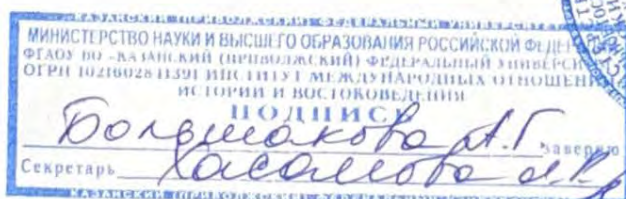 КАЗАНСКИЙ (ПРИВОЛЖСКИЙ) ФЕДЕРАЛЬНЫЙ УНИВЕРСИТЕТ
МИНИСТЕРСТВО НАУКИ И ВЫСШЕГО ОБРАЗОВАНИЯ РОССИЙСКОЙ ФЕДЕР
ФГАОУ ВО «КАЗАНСКИЙ (ПРИВОЛЖСКИЙ) ФЕДЕРАЛЬНЫЙ УНИВЕРСИ
ОГРН 1021602841391 ИНСТИТУТ МЕЖДУНАРОДНЫХ ОТНОШЕН
ИСТОРИИ И ВОСТОКОВЕДЕНИЯ
ПОДПИСЬ
Большакова А.Г. заверяю
Секретарь Хасанова
КАЗАНСКИЙ (ПРИВОЛЖСКИЙ)